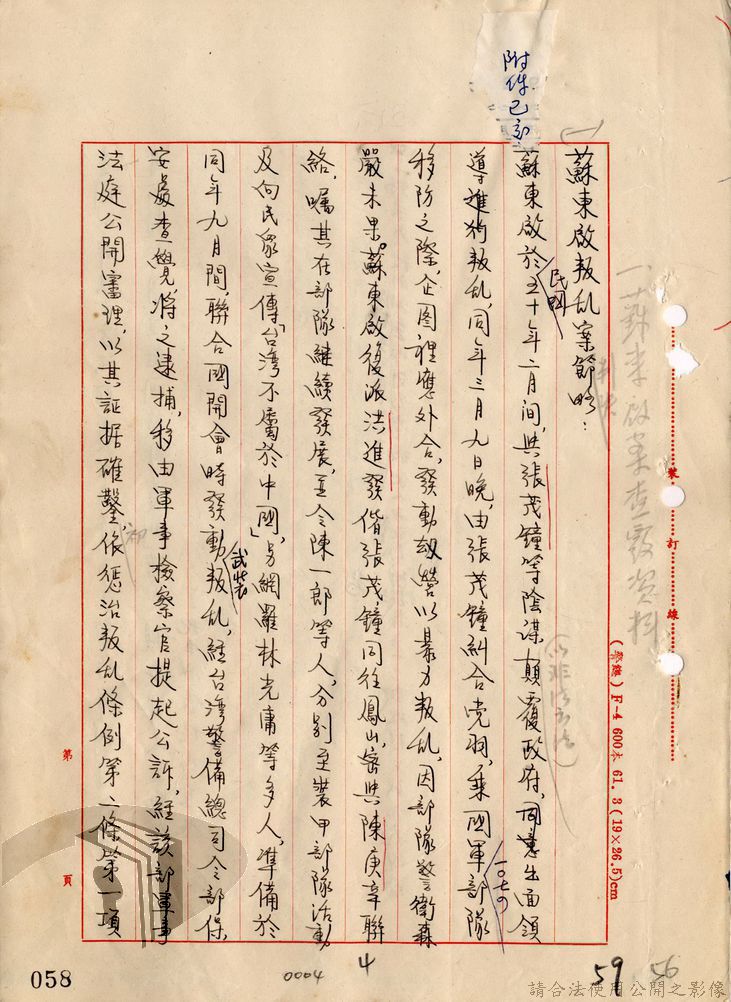 附件已影
蘇東啟叛乱案節略：
蘇東啟於民國五十年二月间，與張茂鐘等陰谋顛覆政府，同意出面領
導進行叛乱，同年三月九日晚，由張茂鐘糾合党羽，乘國軍部隊
移防之際，企图裡應外合，發動刼營以暴力叛乱，因部隊警衛森
嚴未果。蘇東啟復派洪進發偕張茂鐘同往鳳山，密與陳庚辛聯
絡，囑其在部隊継續發展，並令陳一郎等人，分别至裝甲部隊活動
及向民眾宣傳「台湾不屬於中國」，另網羅林光庸等多人，準備於
同年九月間，聯合國開會時發動武裝叛乱，經台湾警備總司令部保
安處查覺，將之逮捕，移由軍事檢察官提起公訴，經該部軍事
法庭公開審理，以其証据確鑿，依惩治叛乱條例第二條第一項
一、蘇東啟案查覆資料
裝訂線
(警總) F-4 600本 61. 3 (19×26.5)cm
第 頁
058
0004
4
59
56
請合法使用公開之影像